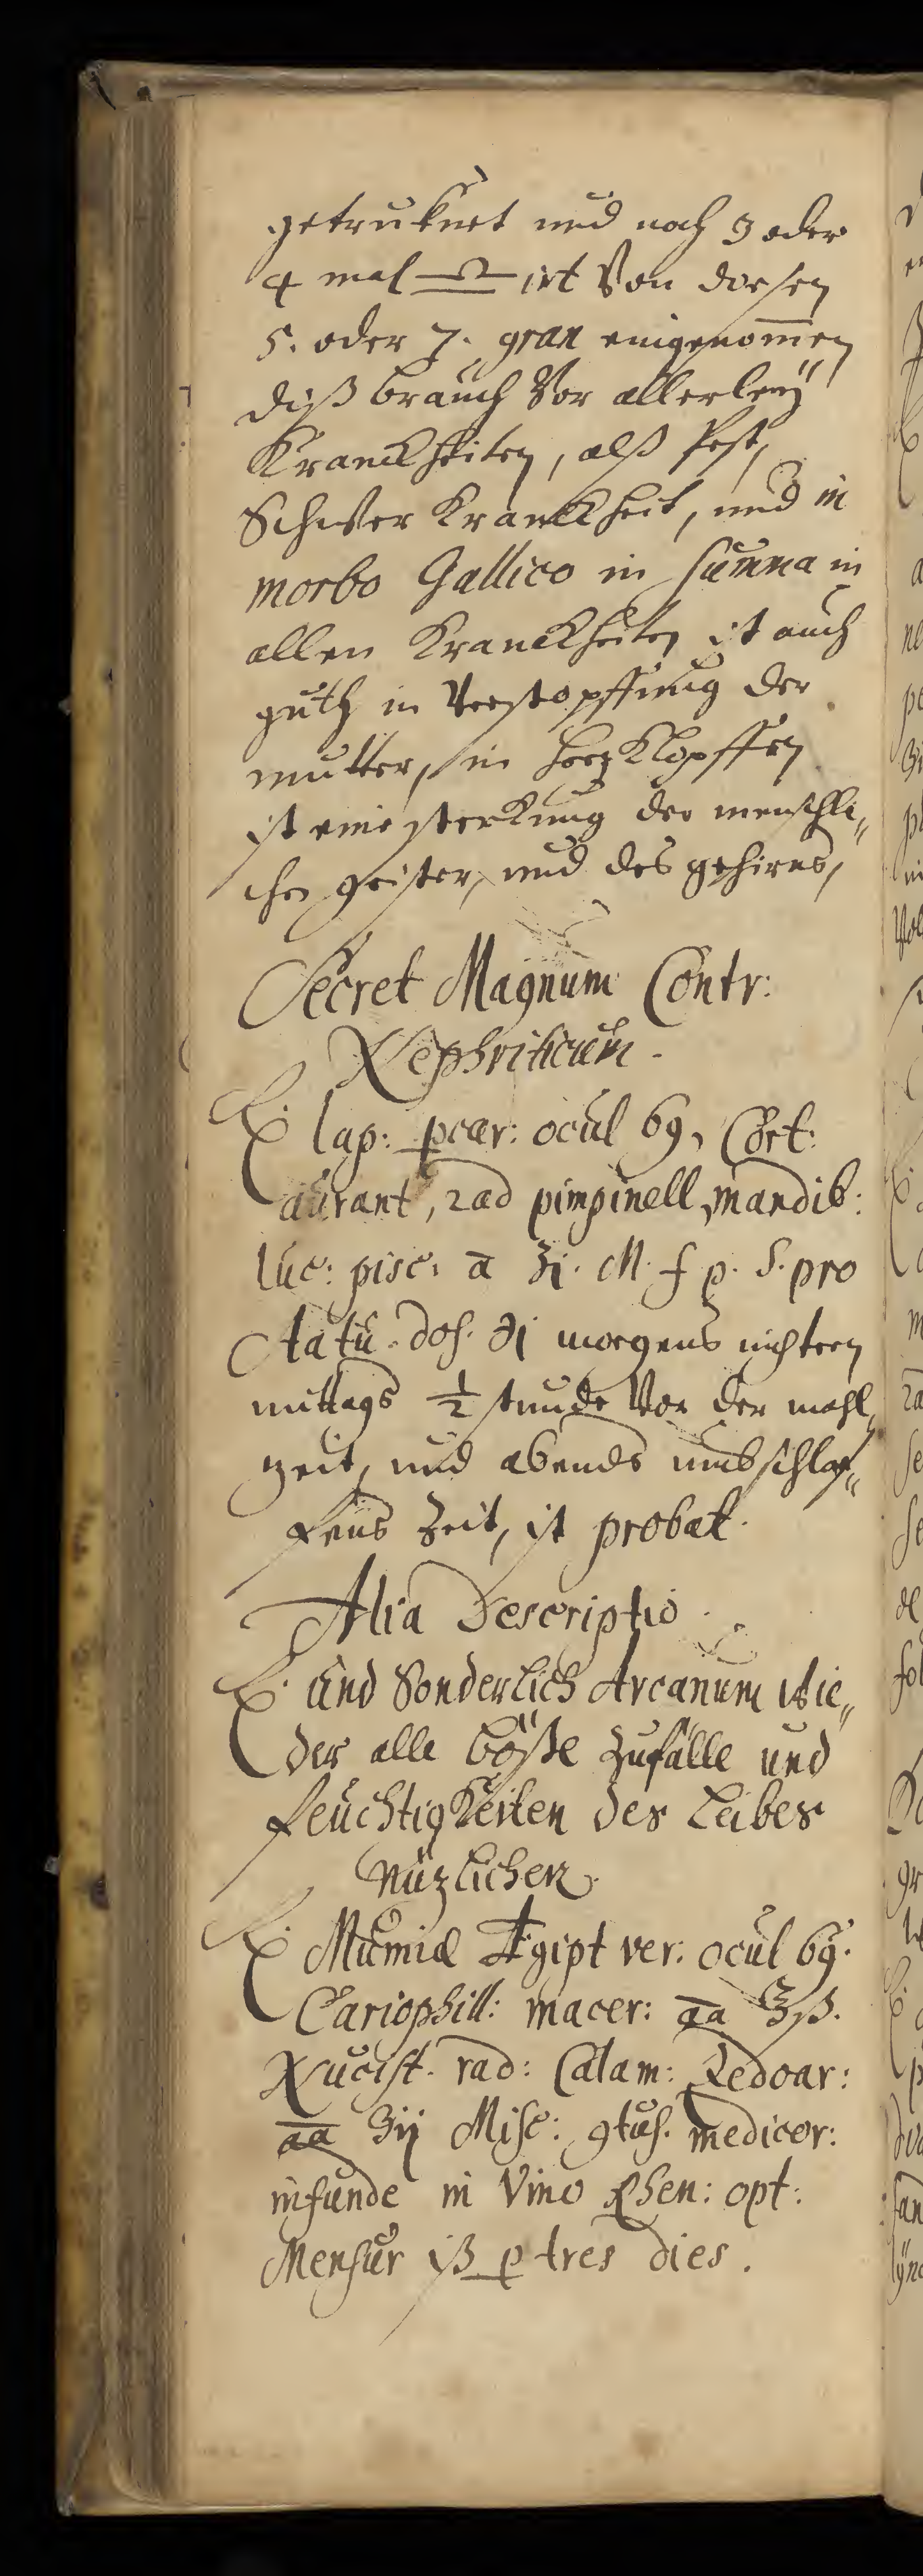 getruknet und noch 3 oder
4 mal ♎ irt Von dießen
5. oder 7. gran eingenom̄en
diß brauch Vor allerleÿ
Kranckheiten, alß Pest,
Schwer Kranckheit, und in
morbo Gallico in Summa in
allen Kranckheiten ist auch
guth in Verstopffung der
mutter, in HerzKlopffen
ist eine sterkung der menschli„
chen geister, und des gehirns,
Secret Magnum Contr:
Nephriticum.
℞ lap: pcar: ocul 69, Cort:
aurant, rad pimpinell, mandib:
luc: pisc: a ʒi. M. f p. S. pro
dos. ℈i morgens nichtern
mittags ½ stunde Vor der mahl„
zeit, und abends umb schlaf„
fens Zeit, ist probat.
Alia Descriptio.
℞ und Sonderlich Arcanum wie„
der alle böße Zufälle und
feuchtigKeiten des Leibes
nüzlichen.
℞ Mumiæ Ægipt ver: ocul 69.
Cariophill: macer: aa ʒß.
Nucist. rad: Calam: Zedoar:
aa ʒij Misc: gtus. medicor:
infunde in Vino Rhen: opt:
Mensur iß p tres dies.